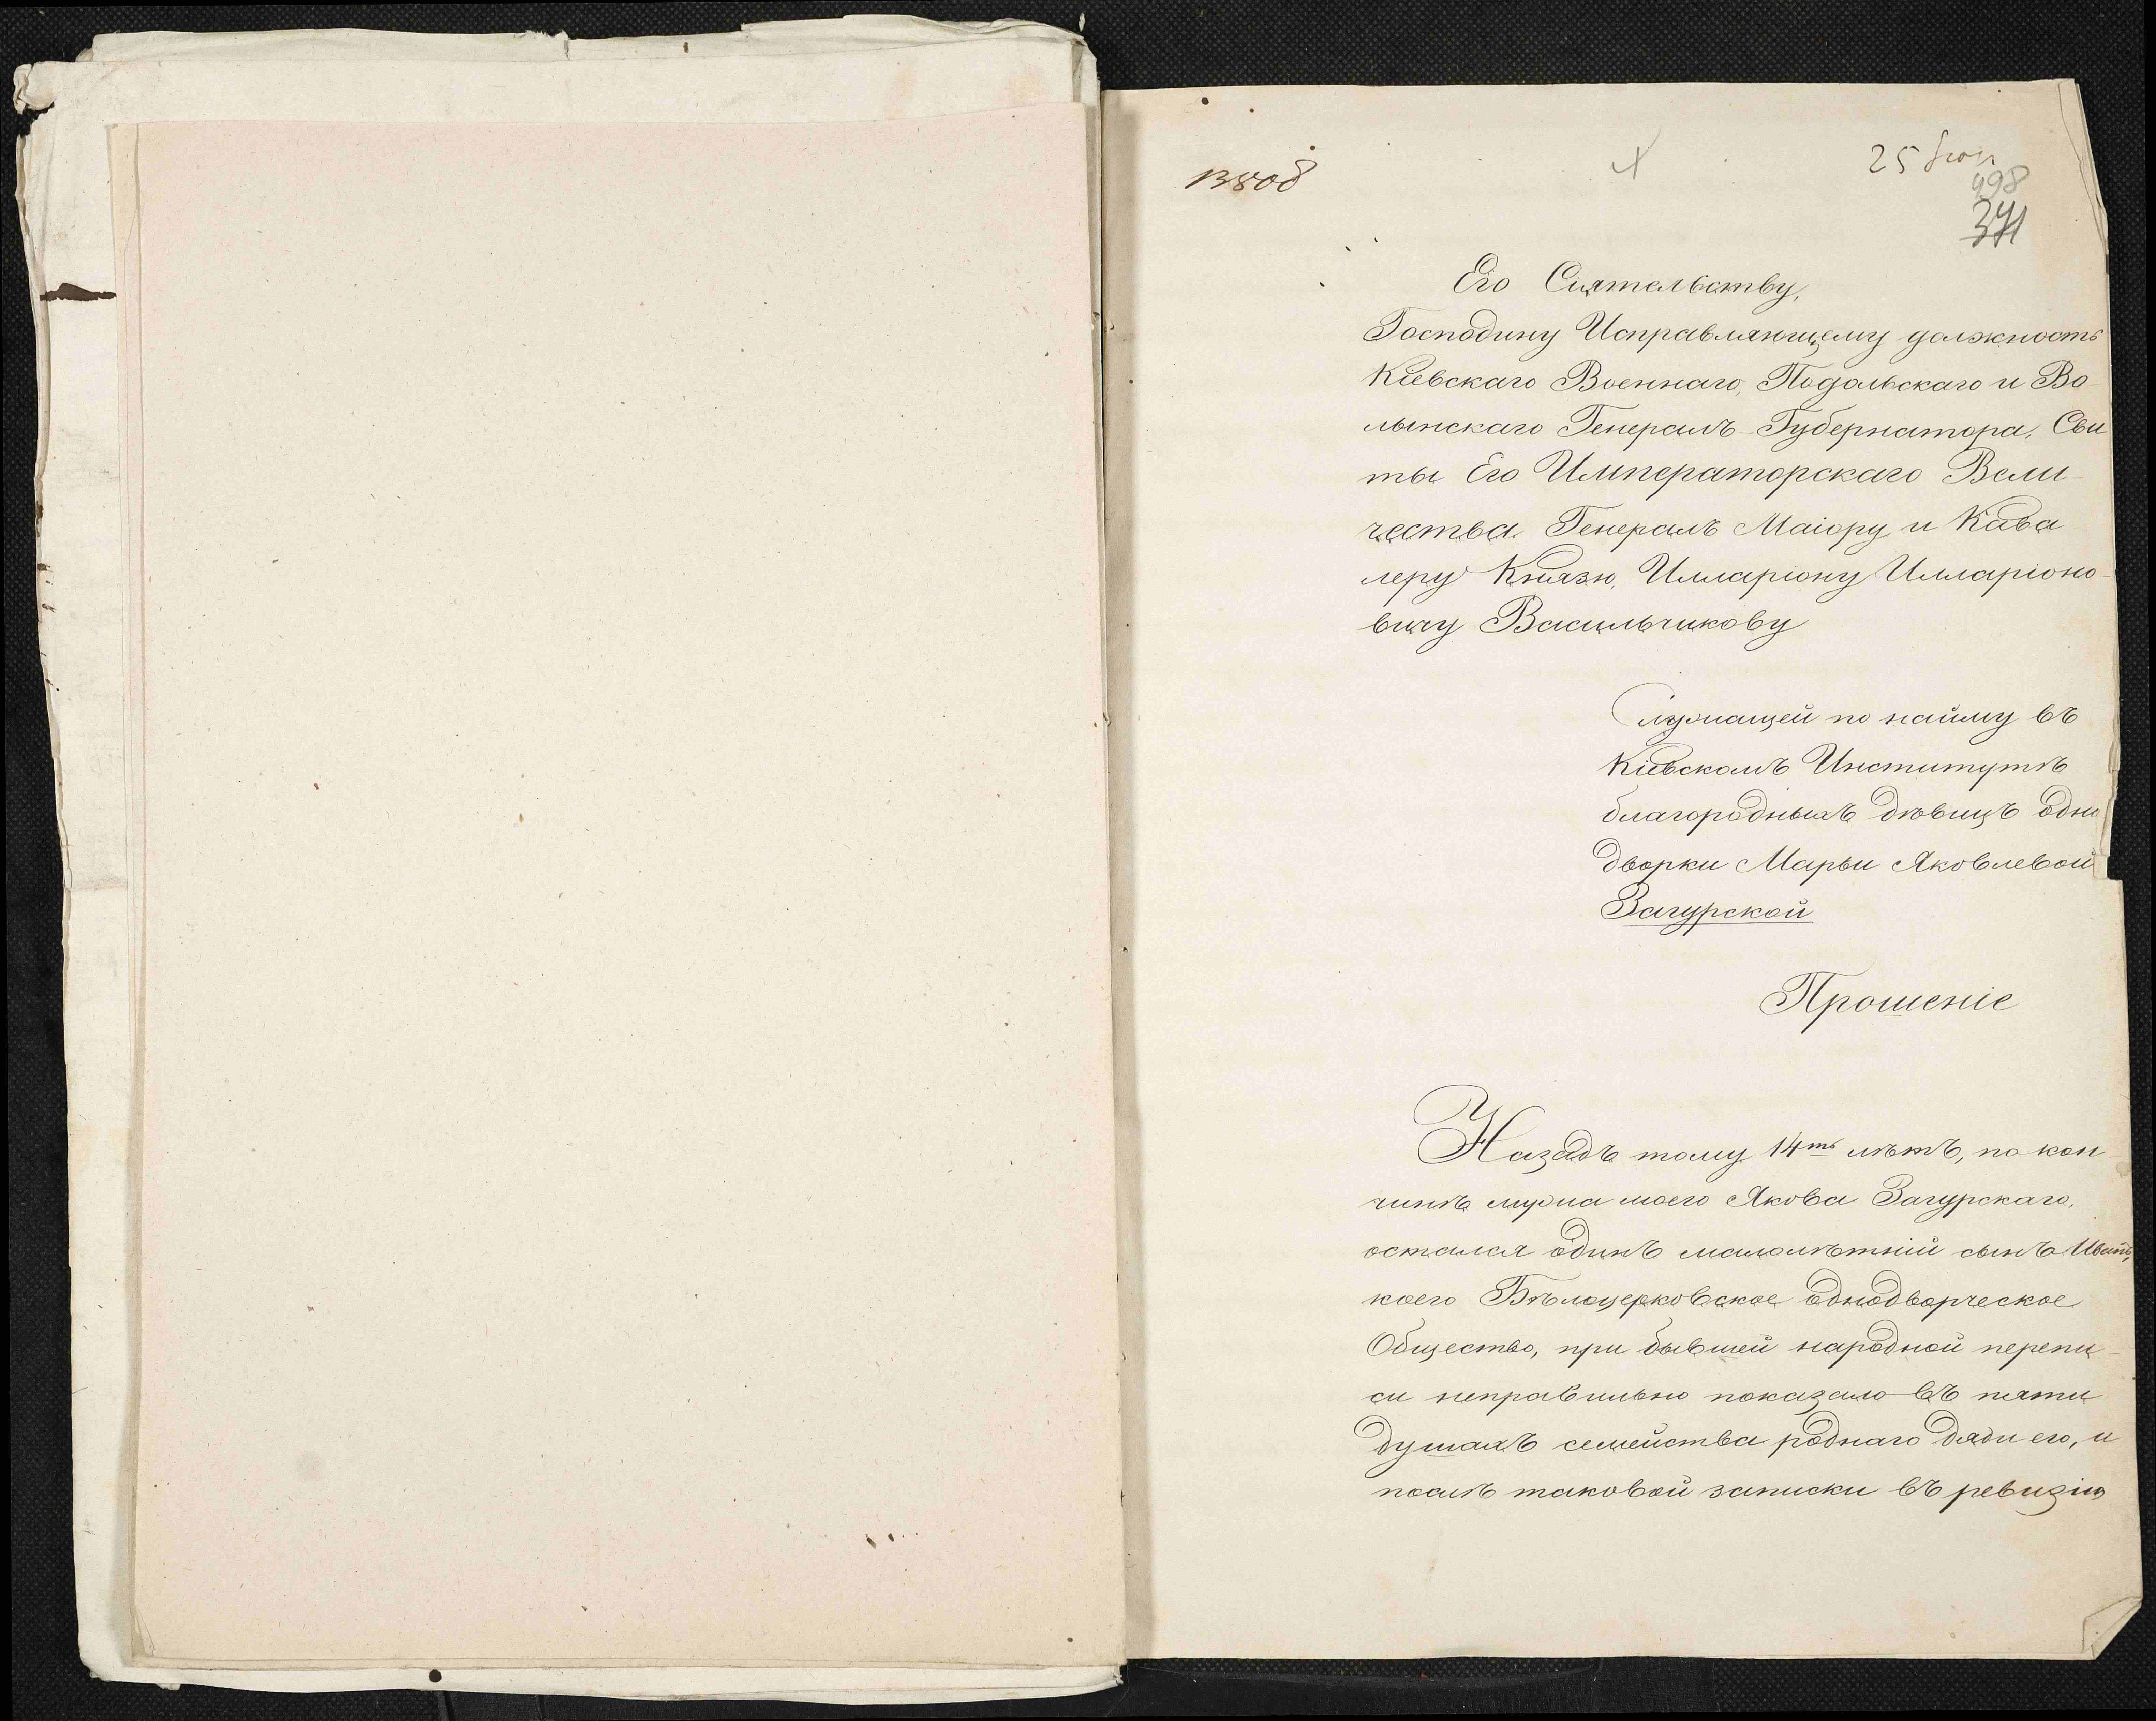 25
498
371
Его Сіятельству,
Господину Исправляющему должность
Кіевскаго Военнаго, Подольскаго и Во-
лынскаго Генералъ-Губернатора, Сви
ты Его Императорскаго Вели-
чества Генералъ Маіору и Кава
леру Князю, Илларіону Илларіоно-
вичу Васильчикову
Служащей по найму въ
Кіевскомъ Институтѣ
благородныхъ дѣвицъ одно
дворки Марьи Яковлевой
Загурской
Прошеніе
Назадъ тому 14ть лѣтъ, по кон
чинѣ мужа моего Якова Загурскаго,
остался одинъ малолѣтній сынъ Иванъ,
коего Бѣлоцерковское однодворческое
Общество, при бывшей народной перепи-
си неправильно показало въ пяти
душахъ семейства роднаго дяди его, и
послѣ таковой записки въ ревизію